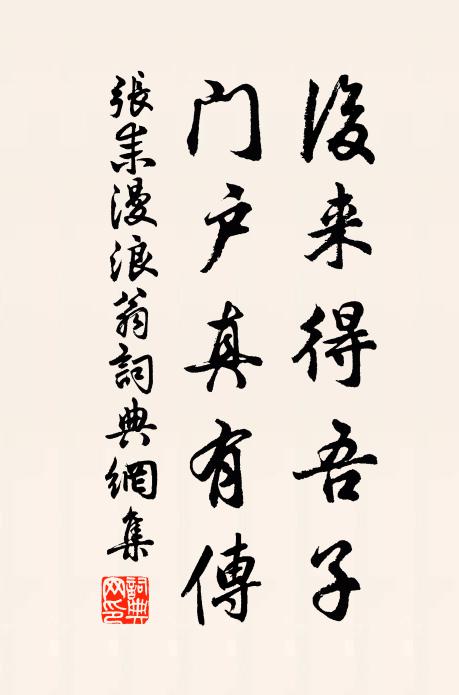 後来得吾子
門户真有傳
張耒漫浪翁詞典網集
詞典
网印